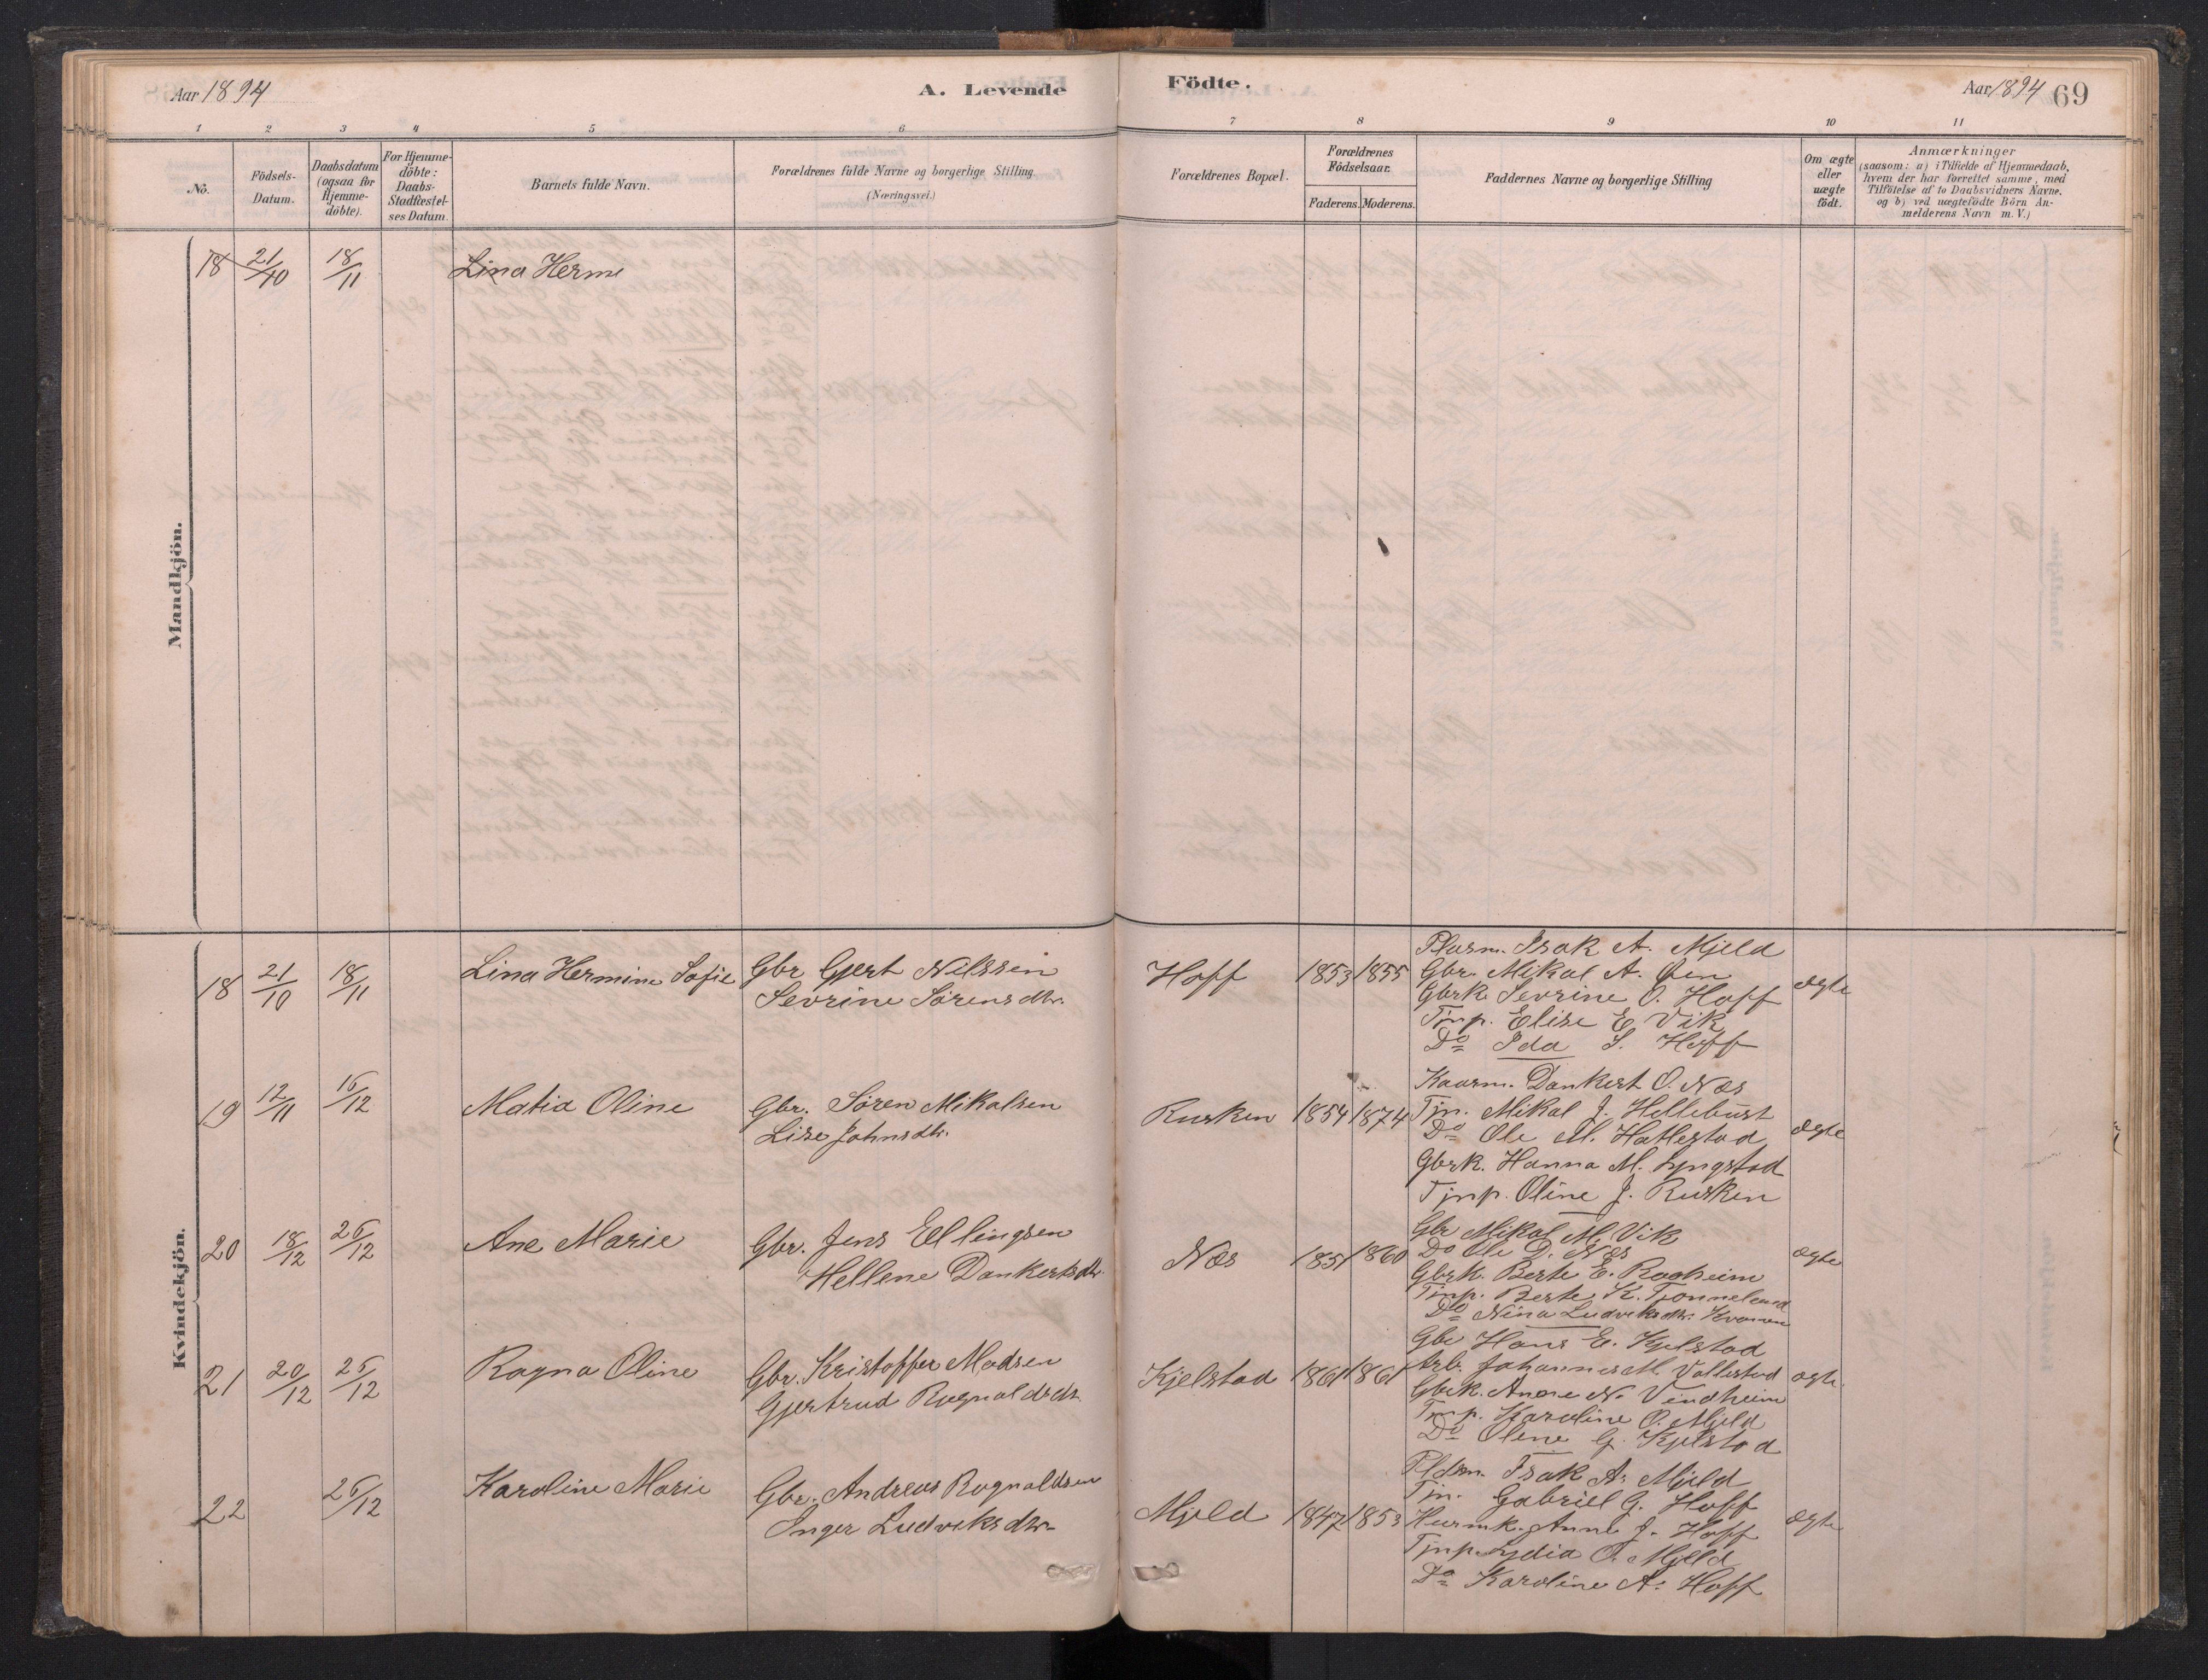 Aar 1894
A. Levende
Födte.
Aar 1894 69
1 2 3 4 5 6 7 8 9 10 11
No.
Födsels-
Datum.
Daabsdatum
(ogsaa for
Hjemme-
döbte).
For Hjemme-
döbte:
Daabs-
Stadfæstel-
ses Datum.
Barnets fulde Navn.
Forældrenes fulde Navne og borgerlige Stilling
(Næringsvei.)
Forældrenes Bopæl.
Forældrenes
Födselsaar.
Faderens. Moderens.
Faddernes Navne og borgerlige Stilling
Om ægte
eller
uægte
födt.
Anmærkninger
(saasom: a) i Tilfælde af Hjemmedaab,
hvem der har forrettet samme, med
Tilföielse af to Daabsvidners Navne.
og b) ved uægtefödte Börn An-
melderens Navn m. V.)
Mandkjön.
18 21/10 18/11 Lina Herme
Kvindekjön.
18 21/10 18/11 Lina Hermine Sofie
Gbr Gjert Nilssen
Sevrine Sörensdtr.
Hoff 1853 1855
Isak A. Mjeld
Gbr. Mikal A. Öen
Gbrk Sevrine O. Hoff
Tjnp. Elise E. Vik
Do Ida S. Hoff
ægte
19 12/11 16/12 Matia Oline
Gbr. Sören Mikalsen
Lise Johnsdtr.
Rusken 1854 1874
Kaarm. Dankert O. Næs
Tjn. Mikal J. Hellebust
Do Ole M. Hatlestad
Gbrk. Hanna M. Lyngstad
Tjnp. Oline J. Rusken
ægte
20 18/12 26/12 Ane Marie
Gbr. Jens Ellingsen
Hellene Dankertsdtr.
Næs 1851 1860
Gbr Mikal M. Vik
Do Ole D. Næs
Gbrk. Berte E. Ragheim
Tjnp. Berte K. Tjönneland
Do Nina Ludviksdtr. Kvamen
ægte
21 20/12 26/12 Ragna Oline
Gbr. Kristoffer Madsen
Gjertrud Rognaldsdtr.
Kjelstad 1861 1861
Gbr Hans E. Kjelstad
Arb. Johannes M. Vallestad
Gbrk. Anne N. Vindheim
Tjnp. Karoline O. Mjeld
Do Oline G. Kjelstad
ægte.
22 26/12 Karoline Marie
Gbr. Andreas Rognaldsen
Inger Ludviksdtr.
Mjeld 1847 1853
Isak A. Mjeld
Tjn. Gabriel G. Hoff
Husmk. Anne J. Hoff
Tjnp. Lydia O. Mjeld
Do Karoline A. Hoff
ægte